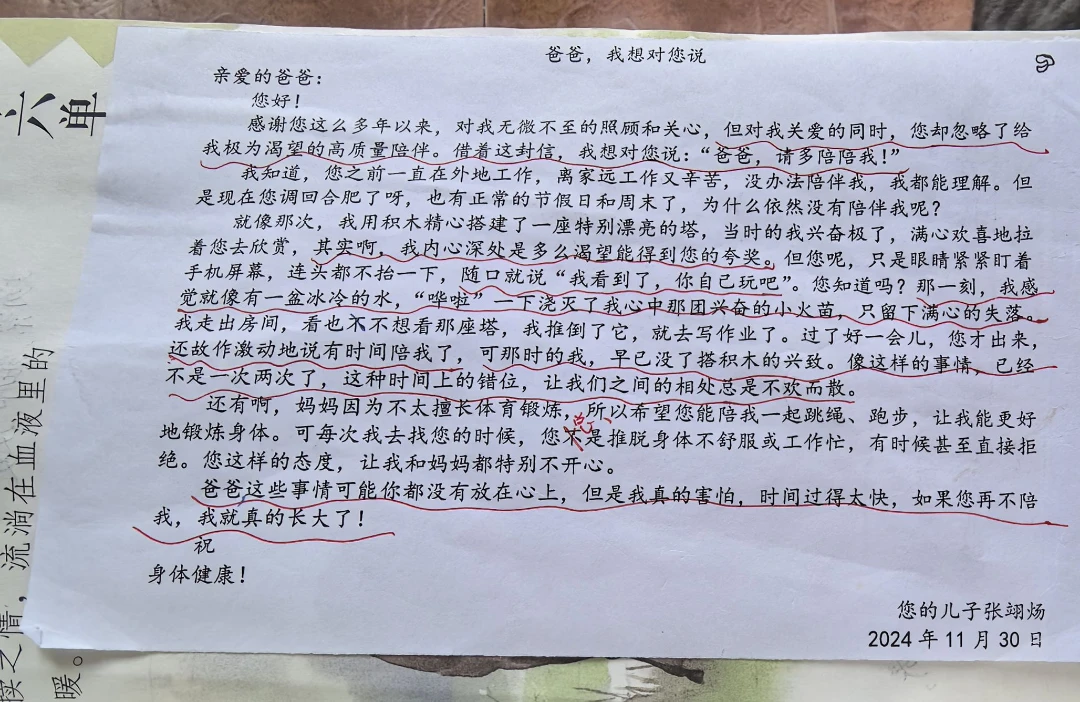 爸爸，我想对您说
亲爱的爸爸：
您好！
感谢您这么多年以来，对我无微不至的照顾和关心，但对我关爱的同时，您却忽略了给
我极为渴望的高质量陪伴。借着这封信，我想对您说：“爸爸，请多陪陪我！”
我知道，您之前一直在外地工作，离家远工作又辛苦，没办法陪伴我，我都能理解。但
是现在您调回合肥了呀，也有正常的节假日和周末了，为什么依然没有陪伴我呢？
就像那次，我用积木精心搭建了一座特别漂亮的塔，当时的我兴奋极了，满心欢喜地拉
着您去欣赏，其实啊，我内心深处是多么渴望能得到您的夸奖。但您呢，只是眼睛紧紧盯着
手机屏幕，连头都不抬一下，随口就说“我看到了，你自己玩吧”。您知道吗？那一刻，我感
觉就像有一盆冰冷的水，“哗啦”一下浇灭了我心中那团兴奋的小火苗，只留下满心的失落。
我走出房间，看也不不想看那座塔，我推倒了它，就去写作业了。过了好一会儿，您才出来，
还故作激动地说有时间陪我了，可那时的我，早已没了搭积木的兴致。像这样的事情，已经
不是一次两次了，这种时间上的错位，让我们之间的相处总是不欢而散。
还有啊，妈妈因为不太擅长体育锻炼，所以希望您能陪我一起跳绳、跑步，让我能更好
总
地锻炼身体。可每次我去找您的时候，您不是推脱身体不舒服或工作忙，有时候甚至直接拒
绝。您这样的态度，让我和妈妈都特别不开心。
爸爸这些事情可能你都没有放在心上，但是我真的害怕，时间过得太快，如果您再不陪
我，我就真的长大了！
祝
身体健康！
您的儿子张翊炀
2024 年 11 月 30 日
六单
流淌在血液里的
之情，
暖。